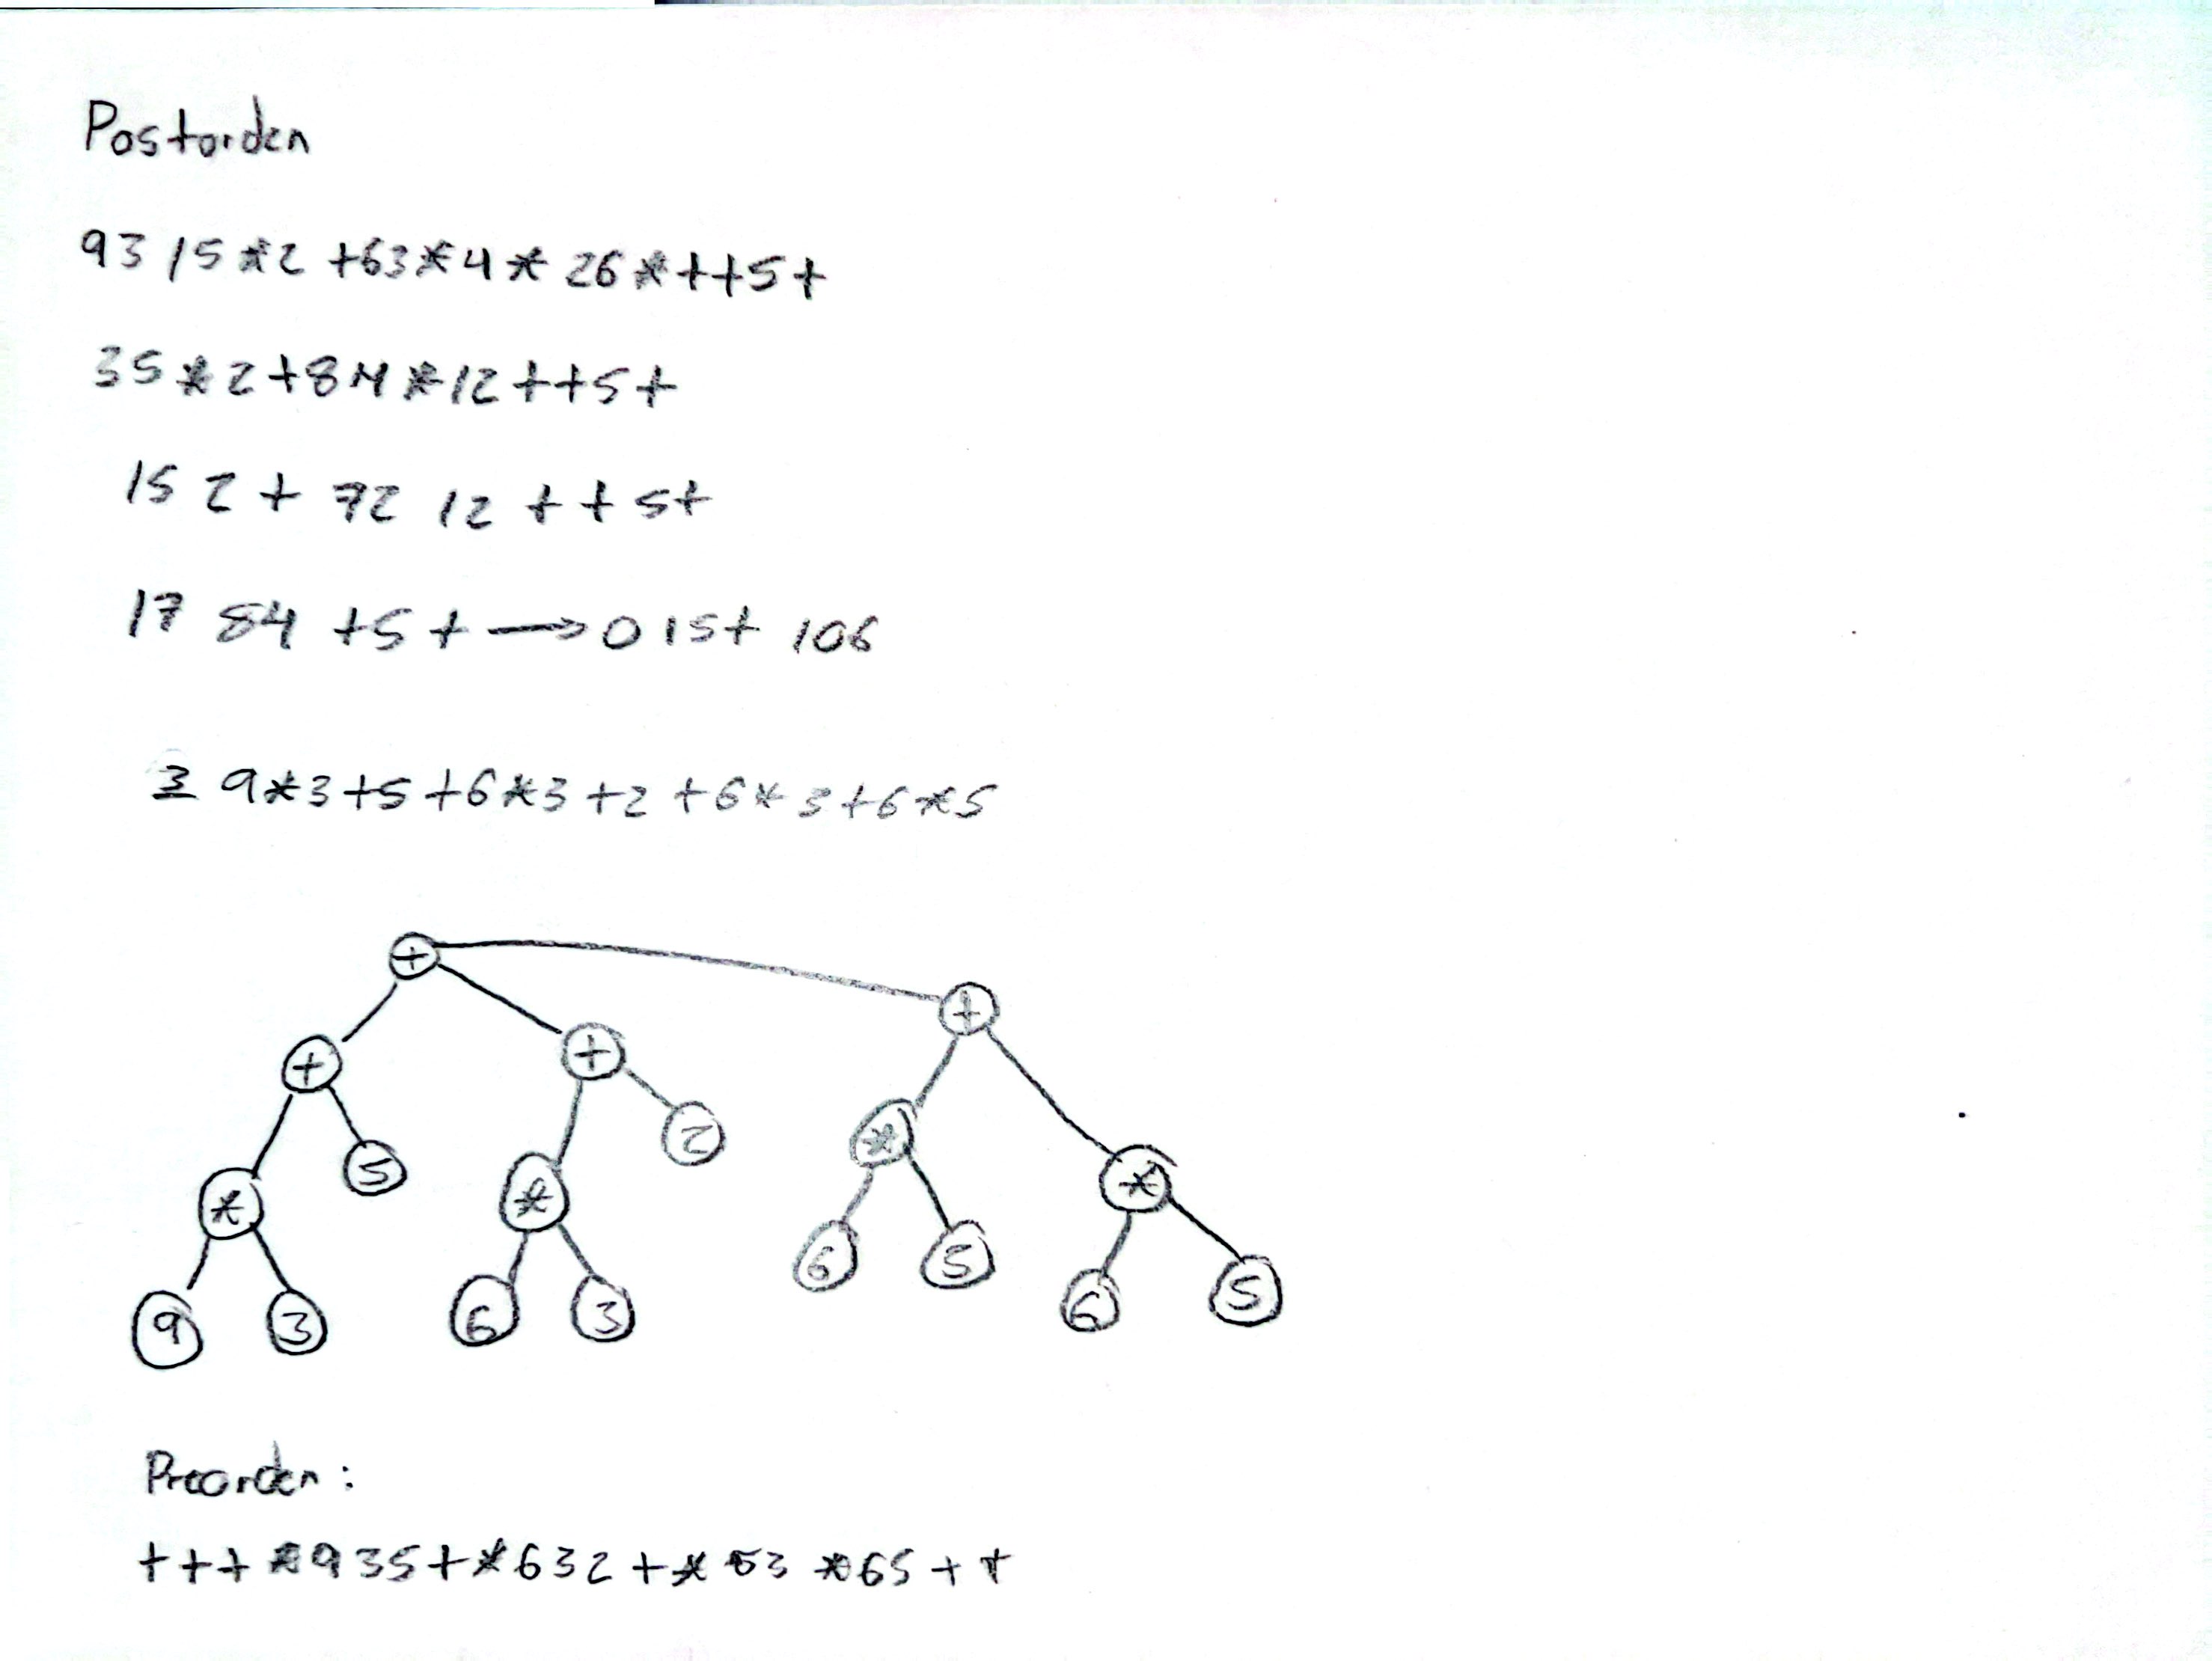 Postorden
93 15*2 +63*4* 26*++5+
35*2+84*12++5+
15 2 + 72 12 + + 5+
17 84 +5+ → 0 15+ 106
3 9*3+5+6*3+2+6*3+6*5
+
+
+
+
2
*
5
*
*
*
6
5
9
3
6
3
6
5
Preorden:
+++*935+*632+* 3 *65++